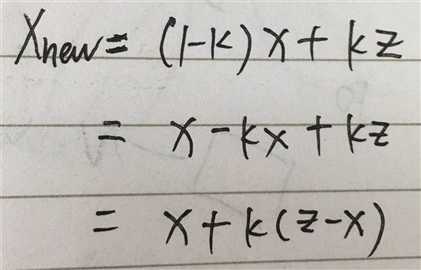 Xnew = (1-k)x + kz
= x - kx + kz
= x + k(z-x)